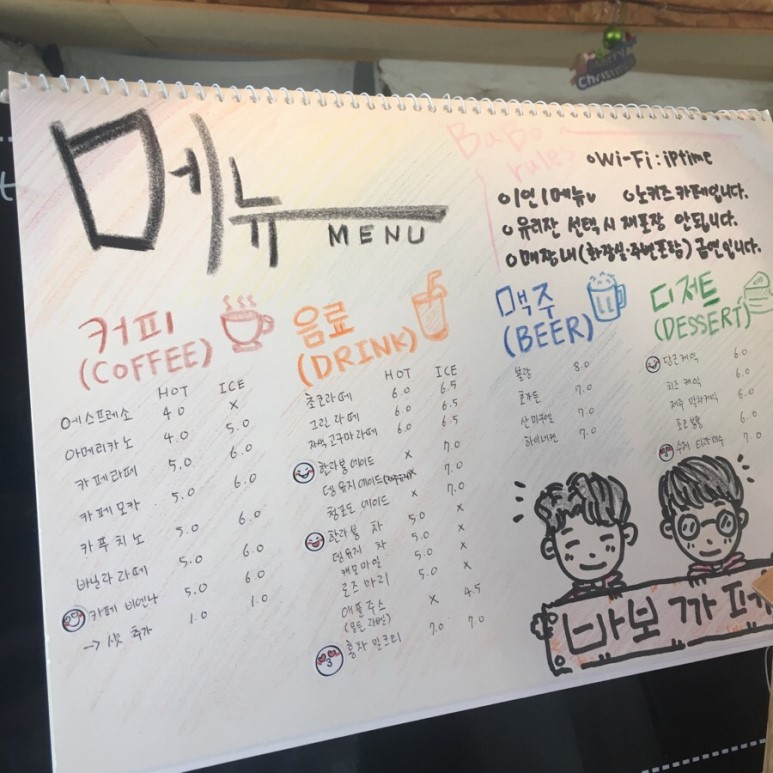 메뉴
MENU
Babo
rules
Wi-Fi : iptime
1인 1메뉴 노키즈 카페입니다.
유리잔 선택 시 재포장 안됩니다.
매장내 (화장실·주변포함) 금연입니다.
커피
(COFFEE)
HOT ICE
에스프레소 4.0 X
아메리카노 4.0 5.0
카페라떼 5.0 6.0
카페모카 5.0 6.0
카푸치노 5.0 6.0
바닐라 라떼 5.0 6.0
카페 비엔나 5.0 6.0
→ 샷 추가 1.0 1.0
음료
(DRINK)
HOT ICE
초코라떼 6.0 6.5
그린 라떼 6.0 6.5
자색 고구마 라떼 6.0 6.5
한라봉 에이드 X 7.0
댕유지 에이드 X 7.0
청포도 에이드 X 7.0
한라봉 차 5.0 X
댕유지 차 5.0 X
캐모마일 5.0 X
로즈마리 5.0 X
애플주스 X 4.5
홍차 밀크티 7.0 7.0
맥주
(BEER)
블랑 8.0
호가든 7.0
산 미구엘 7.0
하이네켄 7.0
디저트
(DESSERT)
당근 케익 6.0
치즈 케익 6.0
제주 말차케익 6.0
초코 봉봉 6.0
수제 티라미수 7.0
바보 까페
Merry
Christmas